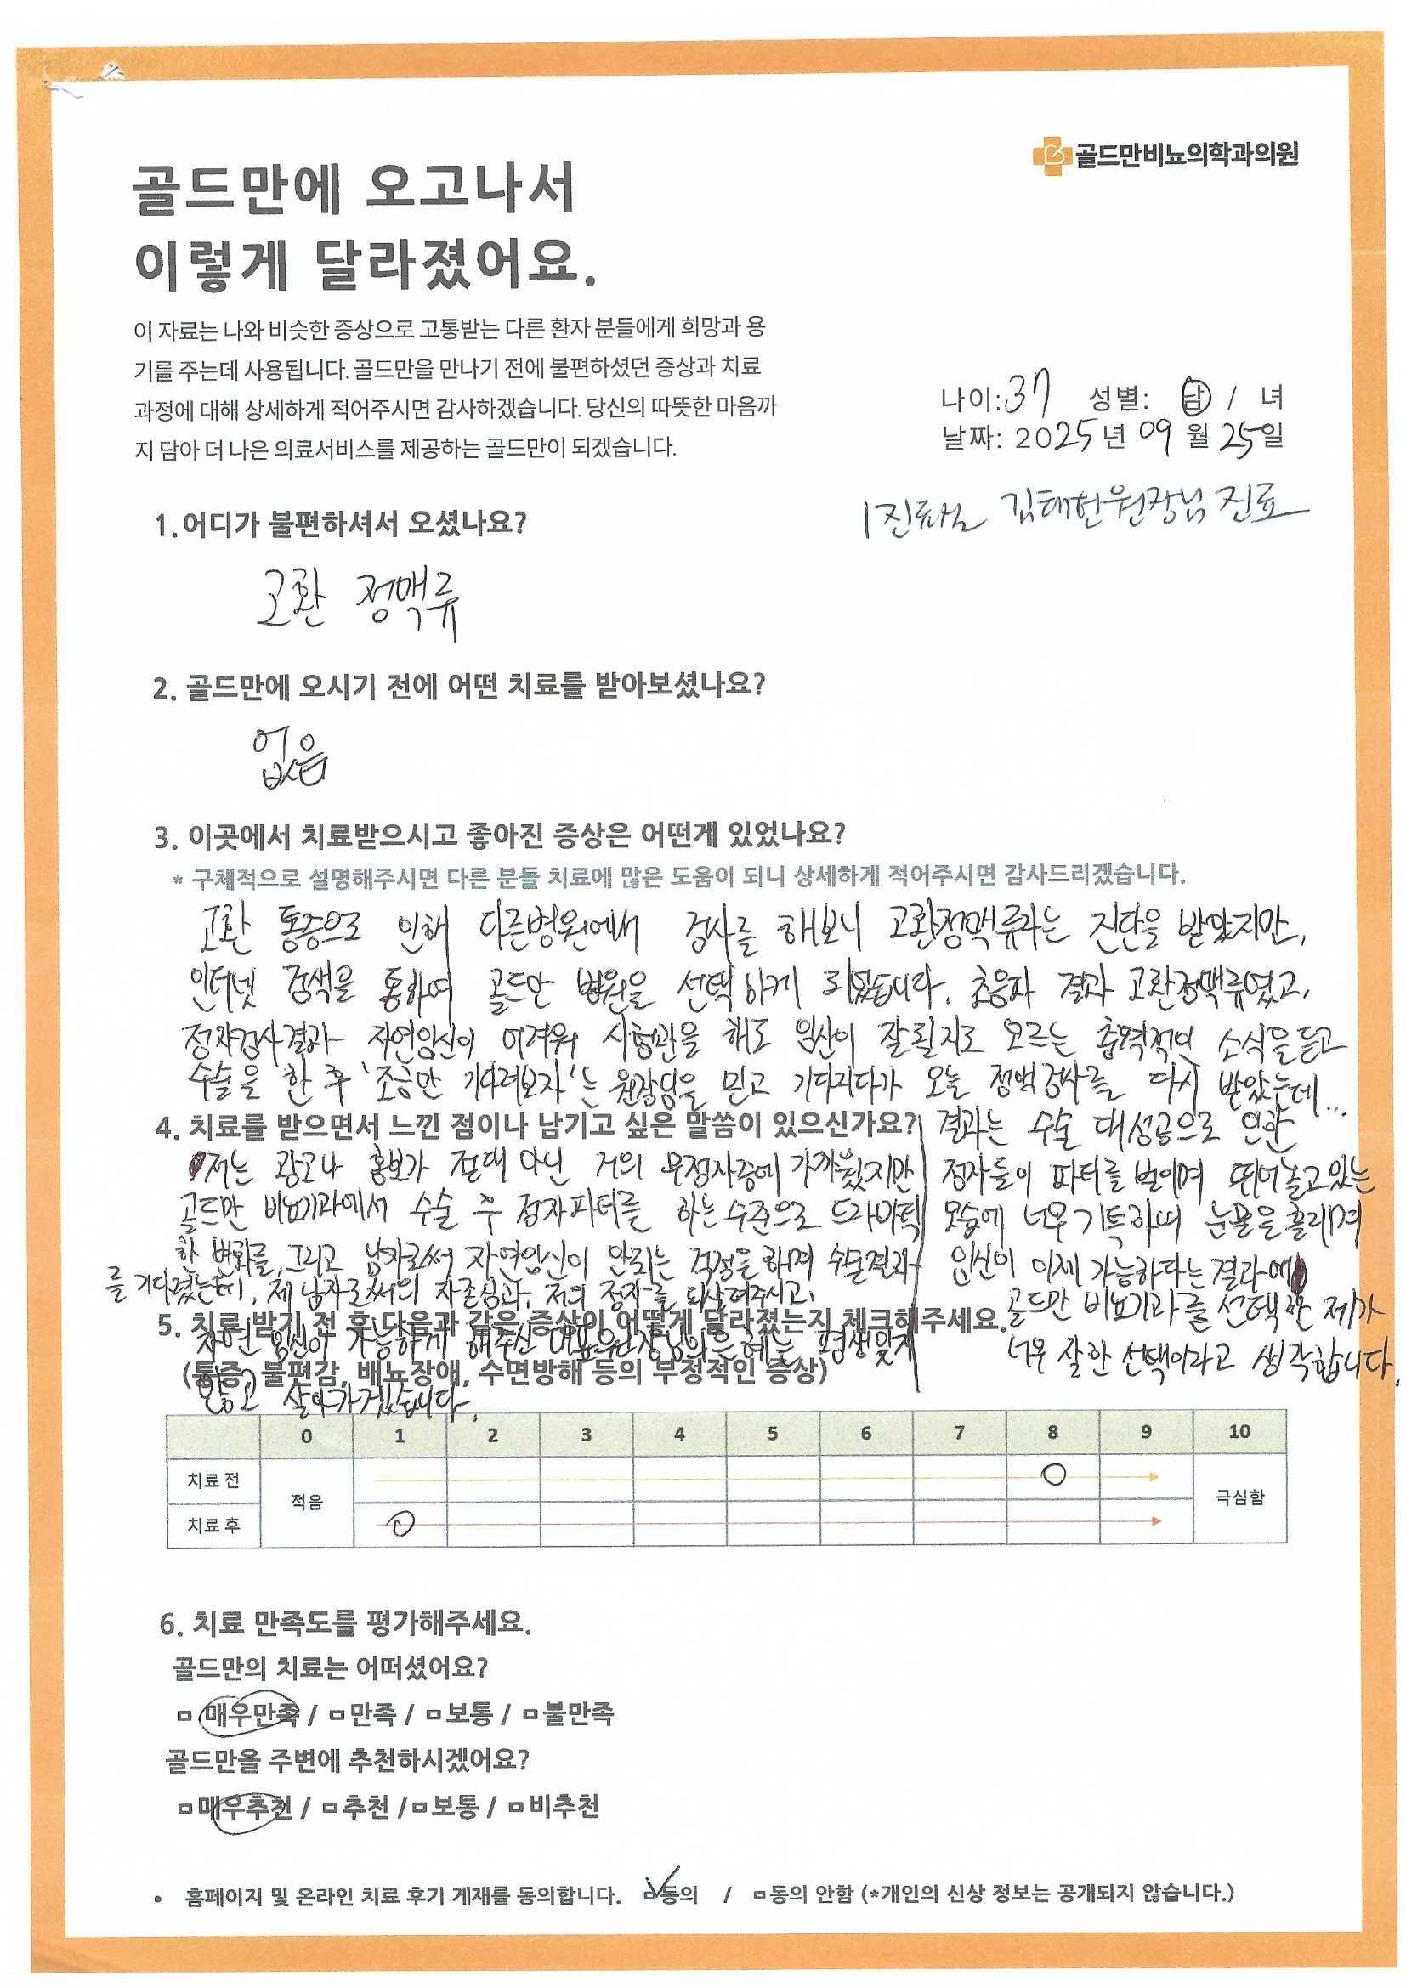 골드만비뇨의학과의원
골드만에 오고나서
이렇게 달라졌어요.
이 자료는 나와 비슷한 증상으로 고통받는 다른 환자 분들에게 희망과 용
기를 주는데 사용됩니다. 골드만을 만나기 전에 불편하셨던 증상과 치료
과정에 대해 상세하게 적어주시면 감사하겠습니다. 당신의 따뜻한 마음까
지 담아 더 나은 의료서비스를 제공하는 골드만이 되겠습니다.
나이: 37 성별: 남 / 녀
날짜: 2025년 09월 25일
1진료실 김태헌원장님 진료
1. 어디가 불편하셔서 오셨나요?
고환 정맥류
2. 골드만에 오시기 전에 어떤 치료를 받아보셨나요?
없음
3. 이곳에서 치료받으시고 좋아진 증상은 어떤게 있었나요?
* 구체적으로 설명해주시면 다른 분들 치료에 많은 도움이 되니 상세하게 적어주시면 감사드리겠습니다.
고환 통증으로 인해 다른병원에서 검사를 해보니 고환정맥류라는 진단을 받았지만,
인터넷 검색을 통하여 골드만 병원을 선택하게 되었습니다. 초음파 결과 고환정맥류였고,
정자검사결과 자연임신이 어려워 시험관을 해도 임신이 잘될지도 모르는 충격적인 소식을 듣고
수술을 한 후 '조금만 기다려보자'는 원장님을 믿고 기다리다가 오늘 정액검사를 다시 받았는데...
결과는 수술 대성공으로 인한
정자들이 파티를 벌이며 뛰어놀고있는
모습에 너무 기특하며 눈물을 흘리며
임신이 이제 가능하다는 결과에
골드만 비뇨기과를 선택한 제가
너무 잘한 선택이라고 생각합니다.
4. 치료를 받으면서 느낀 점이나 남기고 싶은 말씀이 있으신가요?
저는 광고나 홍보가 절대 아닌 거의 무정자증에 가까웠지만
골드만 비뇨기과에서 수술 후 정자파티를 하는 수준으로 드라마틱
한 변화를, 그리고 남자로써 자연임신이 안되는 걱정을 하며 수술결과
를 기다렸는데, 제 남자로써의 자존심과, 저의 정자를 되살려주시고,
자연 임신이 가능하게 해주신 대표원장님의 은혜는 평생잊지
않고 살아가겠습니다.
5. 치료 받기 전 후 다음과 같은 증상이 어떻게 달라졌는지 체크해주세요.
(통증, 불편감, 배뇨장애, 수면방해 등의 부정적인 증상)
0 1 2 3 4 5 6 7 8 9 10
치료 전
적음 극심함
치료 후
6. 치료 만족도를 평가해주세요.
골드만의 치료는 어떠셨어요?
□ 매우만족 / □ 만족 / □ 보통 / □ 불만족
골드만을 주변에 추천하시겠어요?
□ 매우추천 / □ 추천 / □ 보통 / □ 비추천
• 홈페이지 및 온라인 치료 후기 게재를 동의합니다. □동의 / □동의 안함 (*개인의 신상 정보는 공개되지 않습니다.)